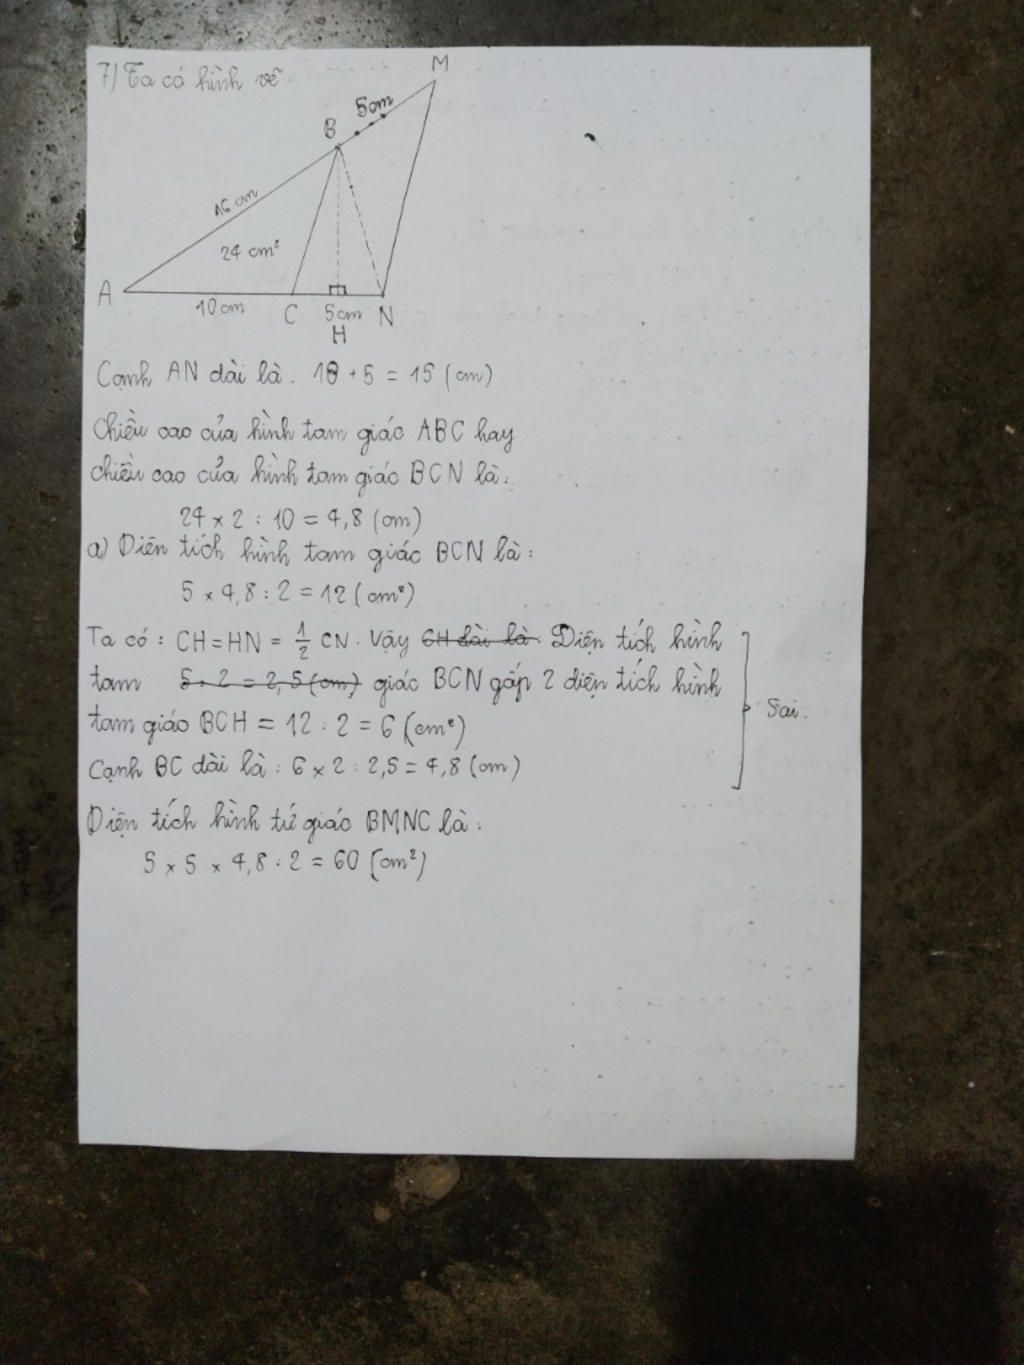 7) Ta có hình vẽ:
M
5cm
B
16 cm
24 cm²
A
10cm C 5cm N
H
Cạnh AN dài là: 10 + 5 = 15 (cm)
Chiều cao của hình tam giác ABC hay
chiều cao của hình tam giác BCN là:
24 x 2 : 10 = 4,8 (cm)
a) Diện tích hình tam giác BCN là:
5 x 4,8 : 2 = 12 (cm²)
Ta có : CH = HN = 1/2 CN. Vậy CH dài là: Diện tích hình
tam 5 : 2 = 2,5 (cm) giác BCN gấp 2 diện tích hình
tam giác BCH = 12 : 2 = 6 (cm²)
Sai.
Cạnh BC dài là : 6 x 2 : 2,5 = 4,8 (cm)
Diện tích hình tứ giác BMNC là:
5 x 5 x 4,8 : 2 = 60 (cm²)